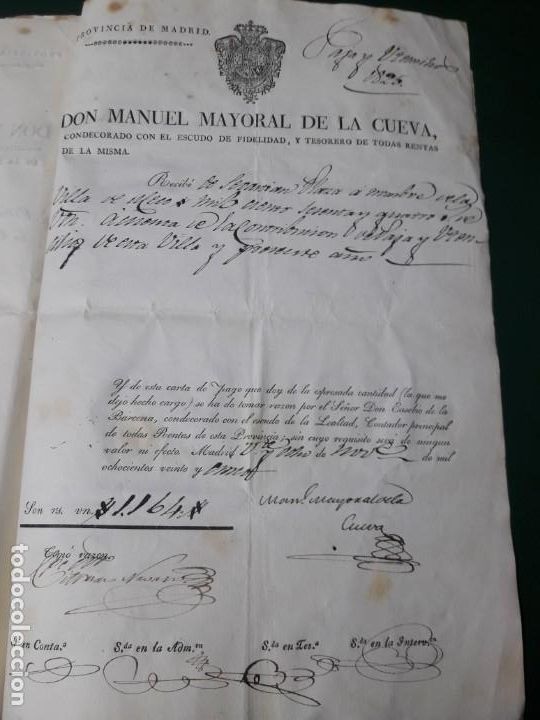 PROVINCIA DE MADRID.
Paja y Utensilios
1825.
DON MANUEL MAYORAL DE LA CUEVA,
CONDECORADO CON EL ESCUDO DE FIDELIDAD, Y TESORERO DE TODAS RENTAS
DE LA MISMA.
Recibí de Sebastian Plaza a nombre de la
Villa de mil ciento sesenta y quatro rs. de
Vn. a cuenta de la Contribucion de Paja y Uten-
silios de esta Villa y presente año
Y de esta carta de pago que doy de la espresada cantidad (la que me
dejo hecho cargo) se ha de tomar razon por el Señor Don Eusebio de la
Barcena, condecorado con el escudo de la Lealtad, Contador principal
de todas Rentas de esta Provincia; sin cuyo requisito sera de ningun
valor ni efecto. Madrid de Nov.e de mil
ochocientos veinte y cinco
Son rs. vn. 1.164
Man.l Mayoral de la
Cueva
Tomó razon
S.da en Conta.a S.da en la Adm.on S.da en Tes.a S.da en la Interv.on
todocoleccion